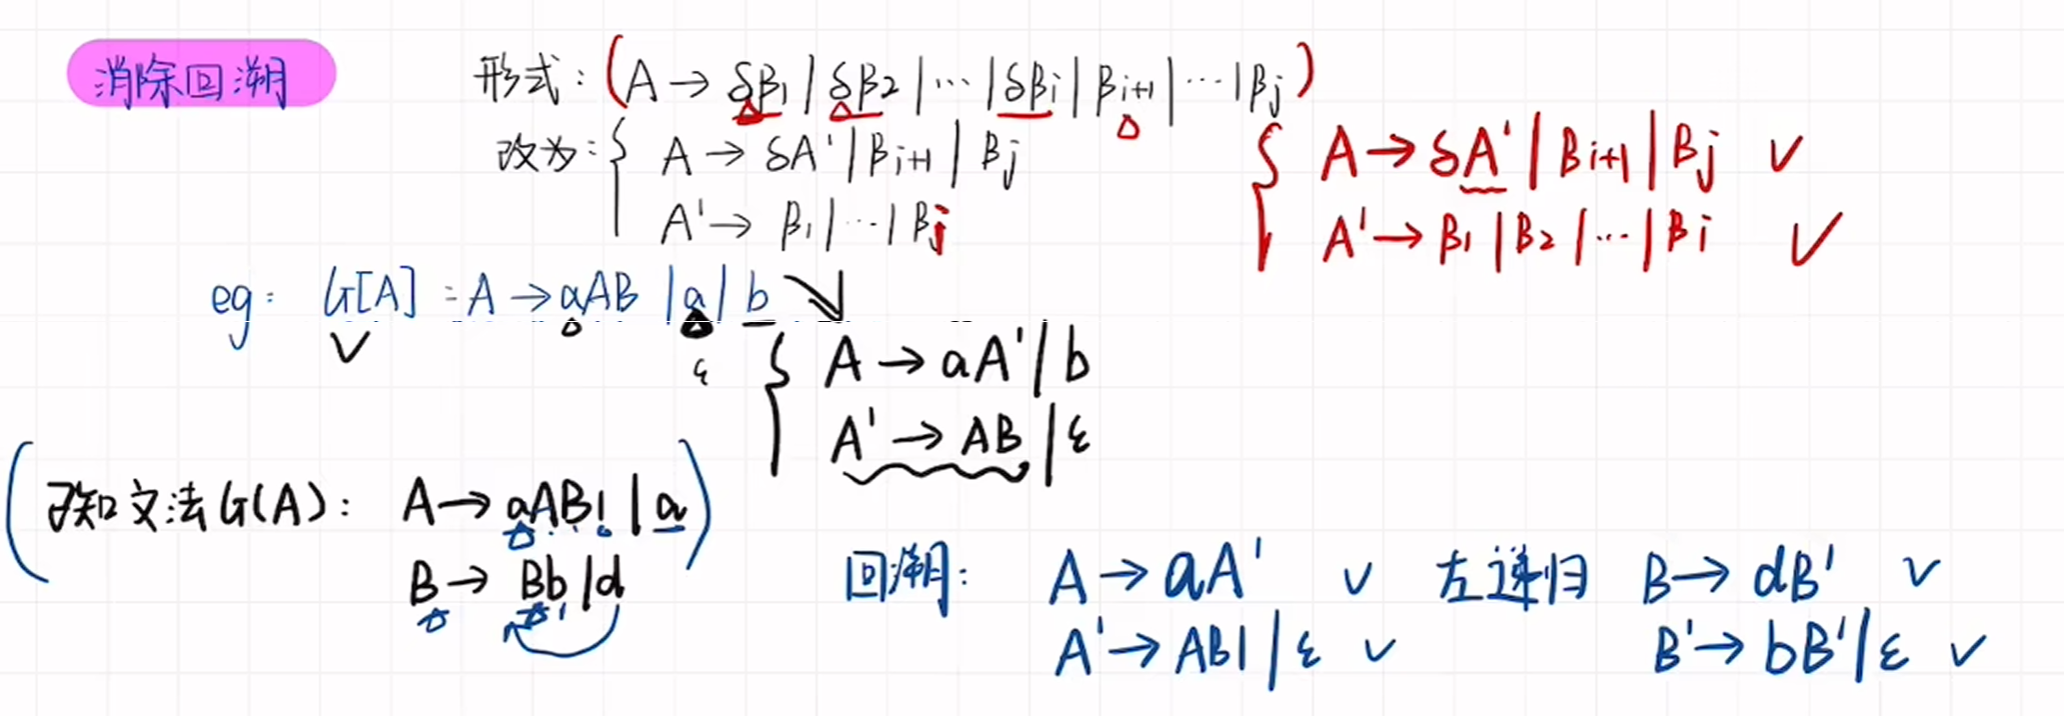 消除回溯
形式：(A → δβ1 | δβ2 | ··· | δβi | βi+1 | ··· | βj)
改为：{ A → δA' | βi+1 | βj
A' → β1 | ··· | βj
{ A → δA' | βi+1 | βj ✓
A' → β1 | β2 | ··· | βi ✓
eg： G[A] : A → aAB | a | b
ε
{ A → aA' | b
A' → AB | ε
(已知文法G(A)： A → aABl | a)
B → Bb | d
回溯： A → aA' ✓ 左递归 B → dB' ✓
A' → ABl | ε ✓ B' → bB' | ε ✓